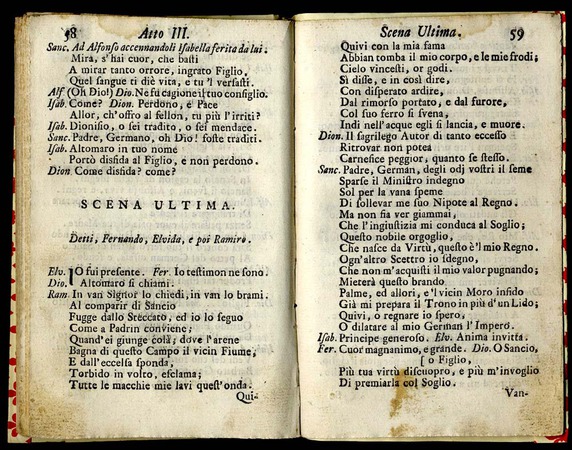 58 Atto III.
Sanc. Ad Alfonso accennandoli Isabella ferita da lui.
Mira, s'hai cuor, che basti
A mirar tanto orrore, ingrato Figlio,
Quel sangue ti diè vita, e tu 'l versasti.
Alf (Oh Dio!) Dio. Ne fu cagione il tuo consiglio.
Isab. Come? Dion. Perdono, e Pace
Allor, ch'offro al fellon, tu più l'irriti?
Isab. Dionisio, o sei tradito, o sei mendace.
Sanc. Padre, Germano, oh Dio! foste traditi.
Isab. Altomaro in tuo nome
Portò disfida al Figlio, e non perdono.
Dion. Come disfida? come?
SCENA ULTIMA.
Detti, Fernando, Elvida, e poi Ramiro.
Elv. IO fui presente. Fer. Io testimon ne sono.
Dio. Altomaro si chiami.
Ram. In van Signor lo chiedi, in van lo brami.
Al comparir di Sancio
Fugge dallo Steccato, ed io lo seguo
Come a Padrin conviene;
Quand'ei giunge colà, dove l'arene
Bagna di questo Campo il vicin Fiume,
E dall'eccelsa sponda,
Torbido in volto, esclama;
Tutte le macchie mie lavi quest'onda.
Qui-
Scena Ultima. 59
Quivi con la mia fama
Abbian tomba il mio corpo, e le mie frodi;
Cielo vincesti, or godi.
Sì disse, e in così dir,
Con disperato ardire,
Dal rimorso portato, e dal furore,
Col suo ferro si svena,
Indi nell'acque egli si lancia, e muore.
Dion. Il sagrilego Autor di tanto eccesso
Ritrovar non potea
Carnefice peggior, quanto se stesso.
Sanc. Padre, German, degli odj vostri il seme
Sparse il Ministro indegno
Sol per la vana speme
Di sollevar me suo Nipote al Regno.
Ma non fia ver giammai,
Che l'ingiustizia mi conduca al Soglio;
Questo nobile orgoglio,
Che nasce da Virtù, questo è 'l mio Regno.
Ogn'altro Scettro io sdegno,
Che non m'acquisti il mio valor pugnando;
Mieterà questo brando
Palme, ed allori, e 'l vicin Moro infido
Già mi prepara il Trono in più d'un Lido;
Quivi, o regnare io spero,
O dilatare al mio German l'Impero.
Isab. Principe generoso. Elv. Anima invitta.
Fer. Cuor magnanimo, e grande. Dio. O Sancio,
[ o Figlio,
Più tua virtù discuopro, e più m'invoglio
Di premiarla col Soglio.
Van-